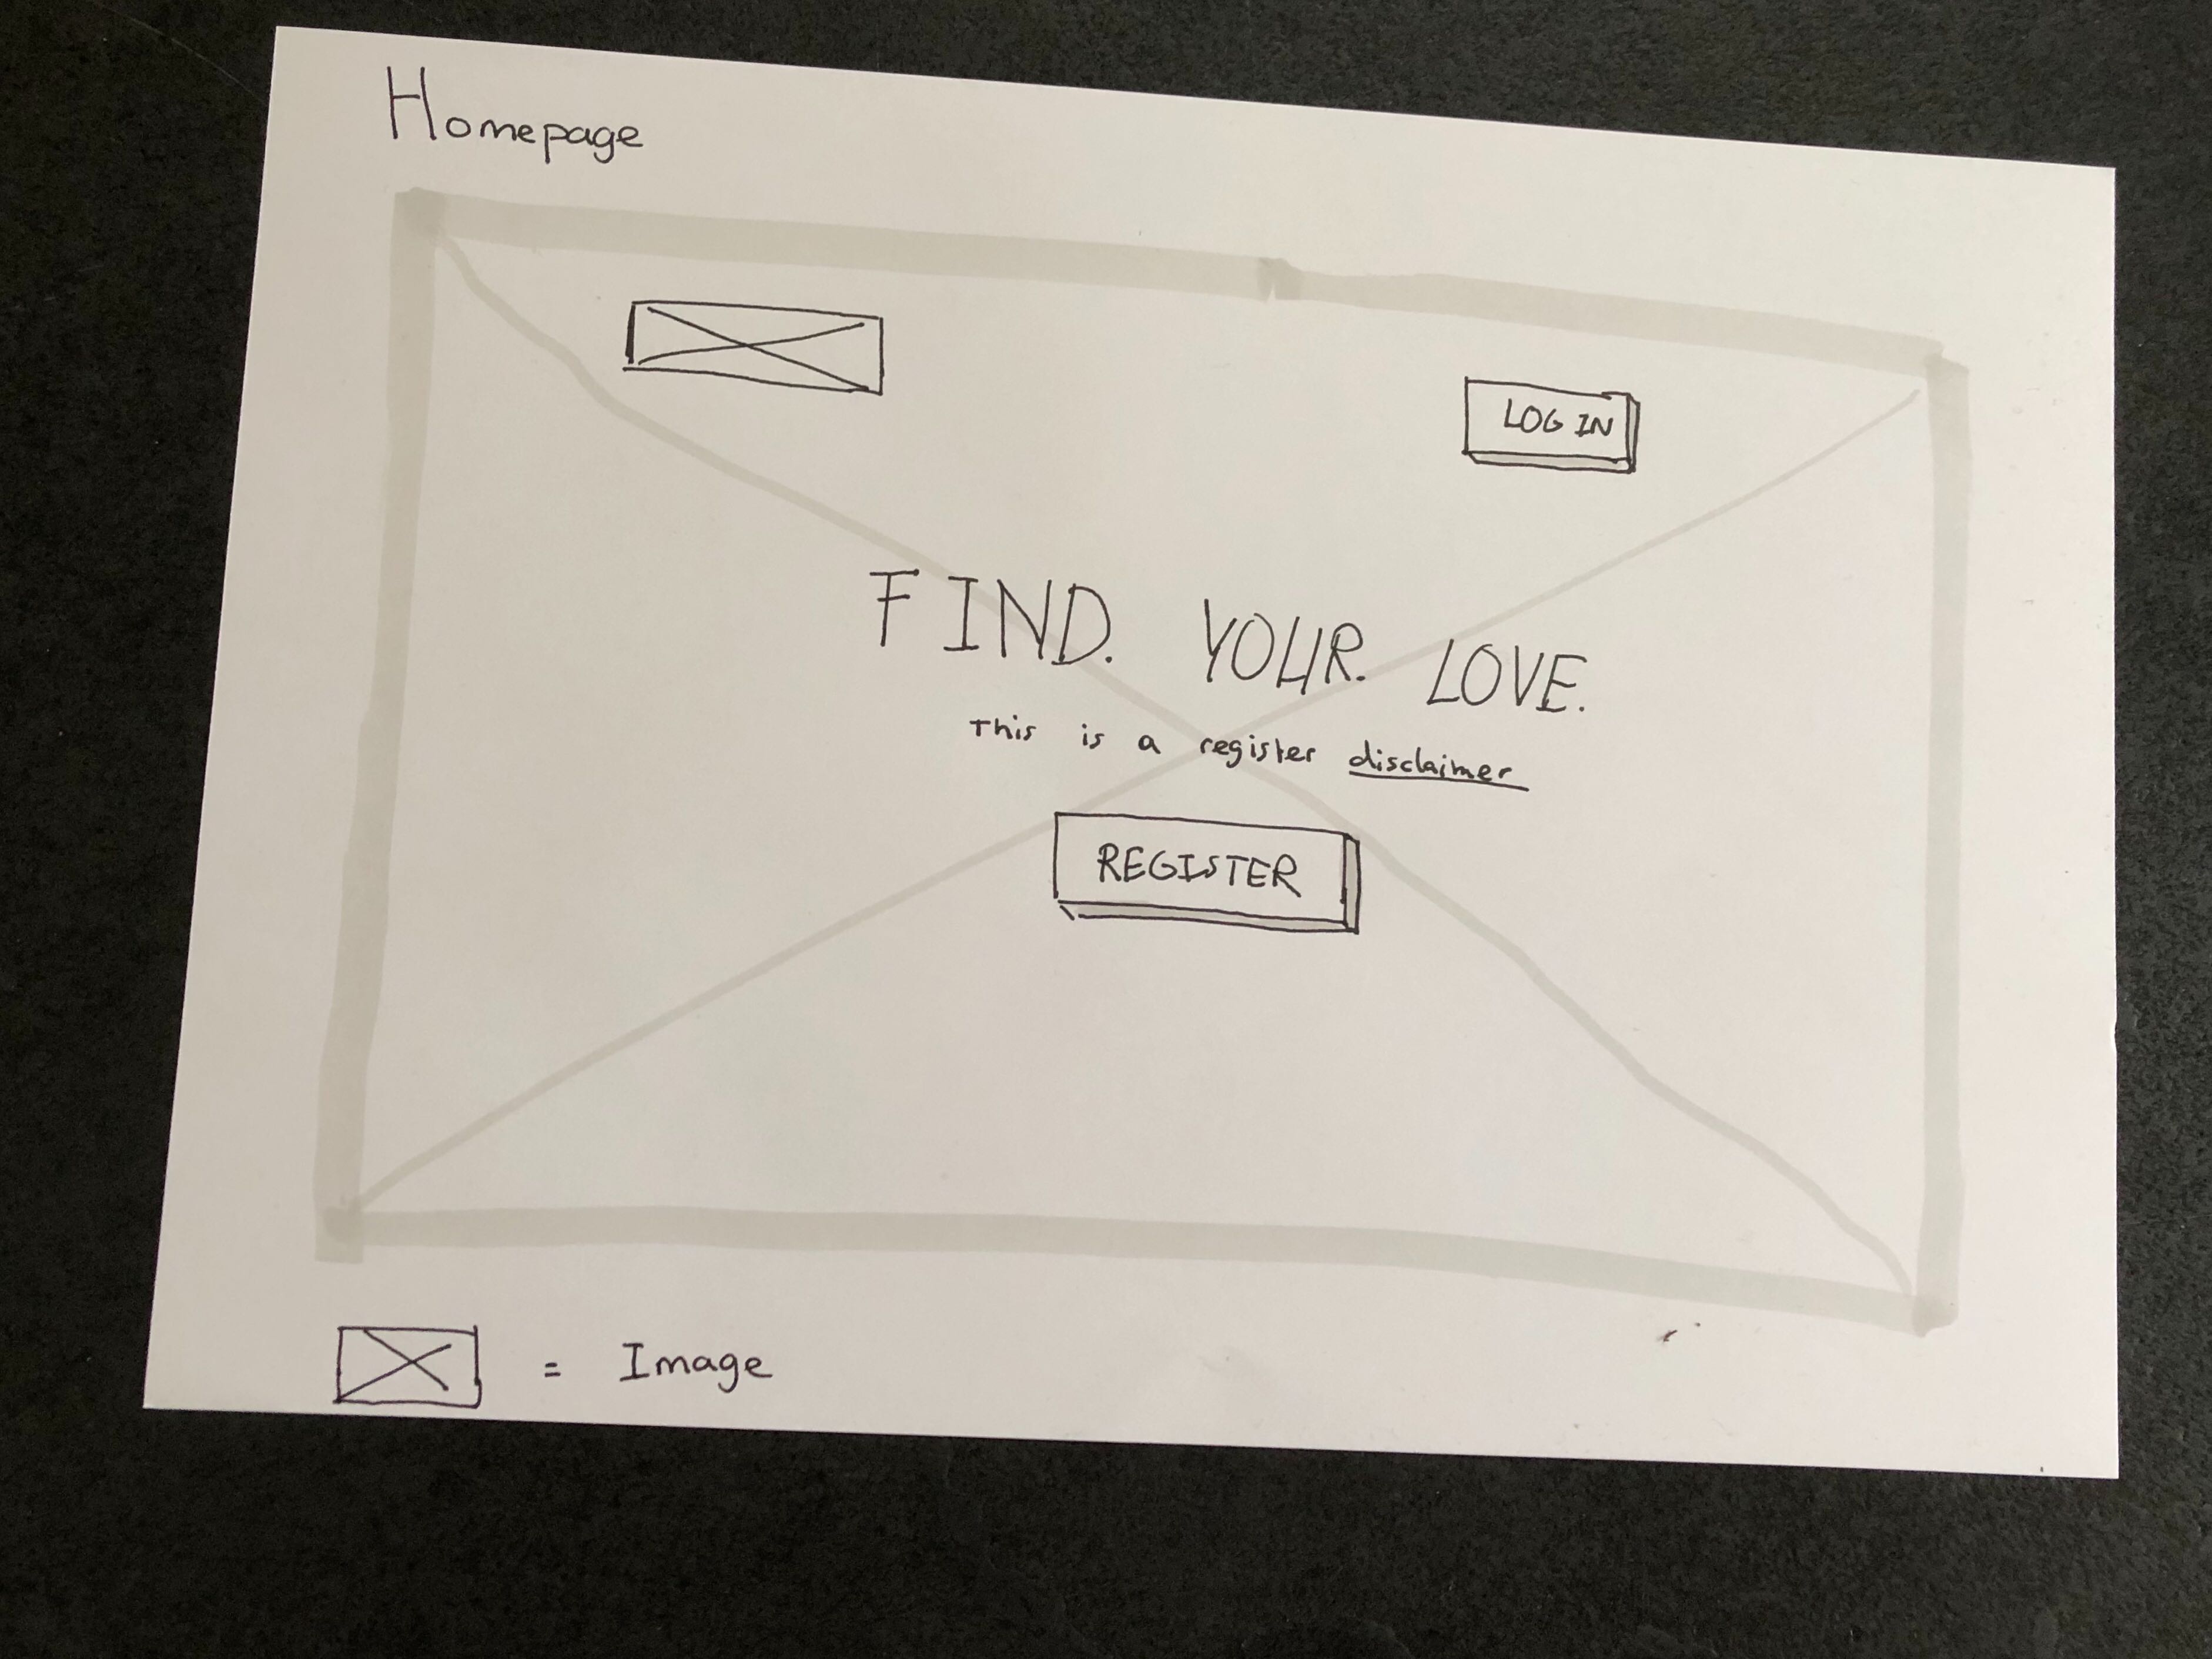 Homepage
LOG IN
FIND. YOUR. LOVE.
This is a register disclaimer
REGISTER
= Image